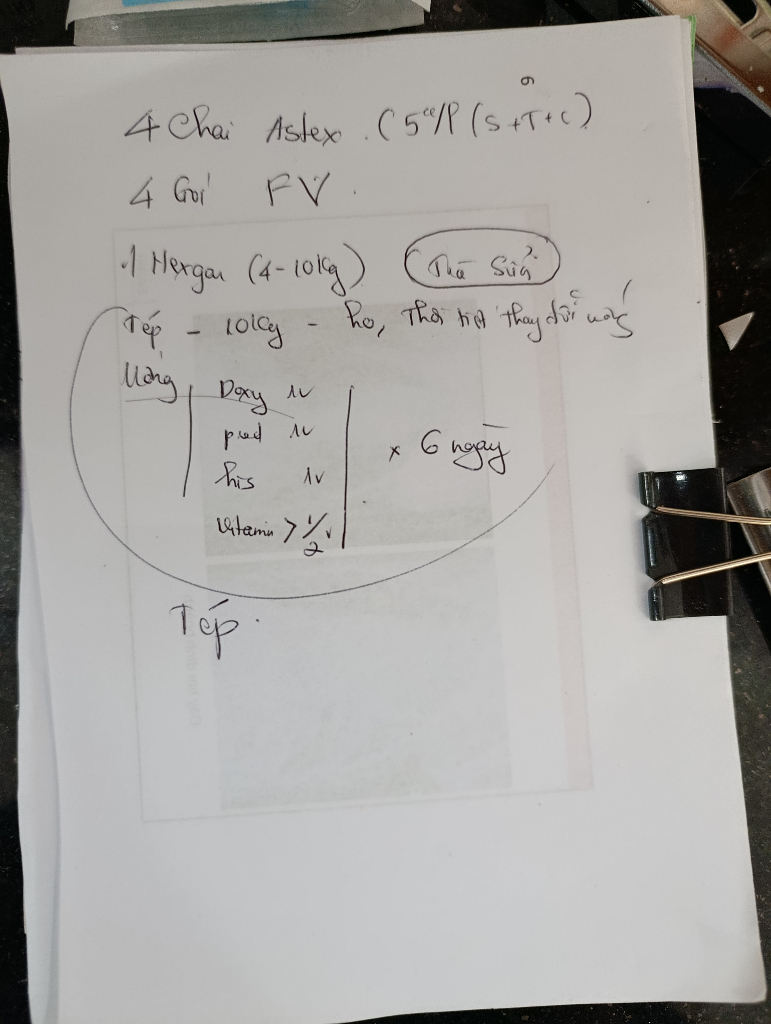 4 Chai Astex. (5cc/P (S+T+C)
4 Gói FV.
1 Nexgan (4-10kg) Thả Sữa
Tép - 10kg - ho, Thời tiết thay đổi
Uống
Doxy 1v
pred 1v
his 1v
Vitamin > 1/2v
x 6 ngày
Tép.